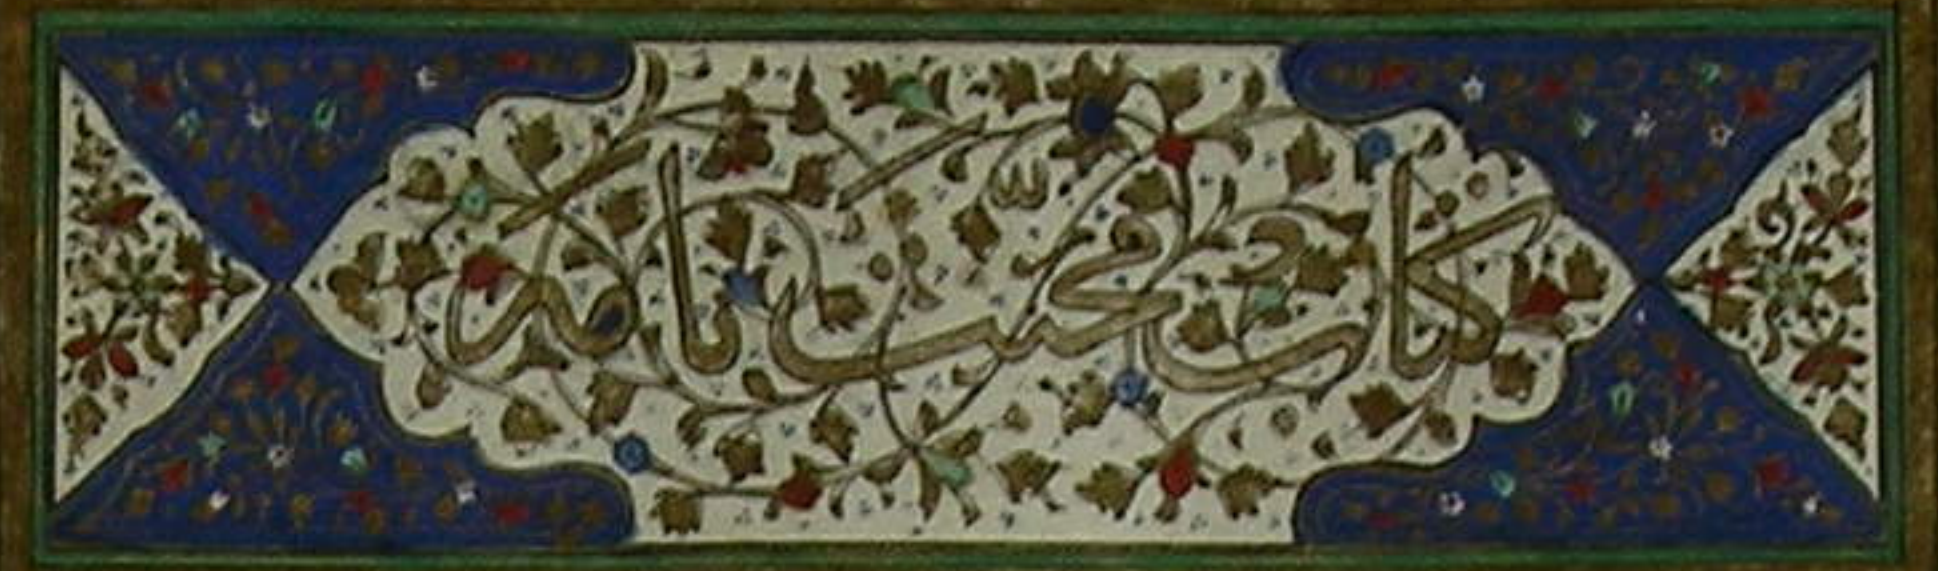 کتاب محبّت نامه